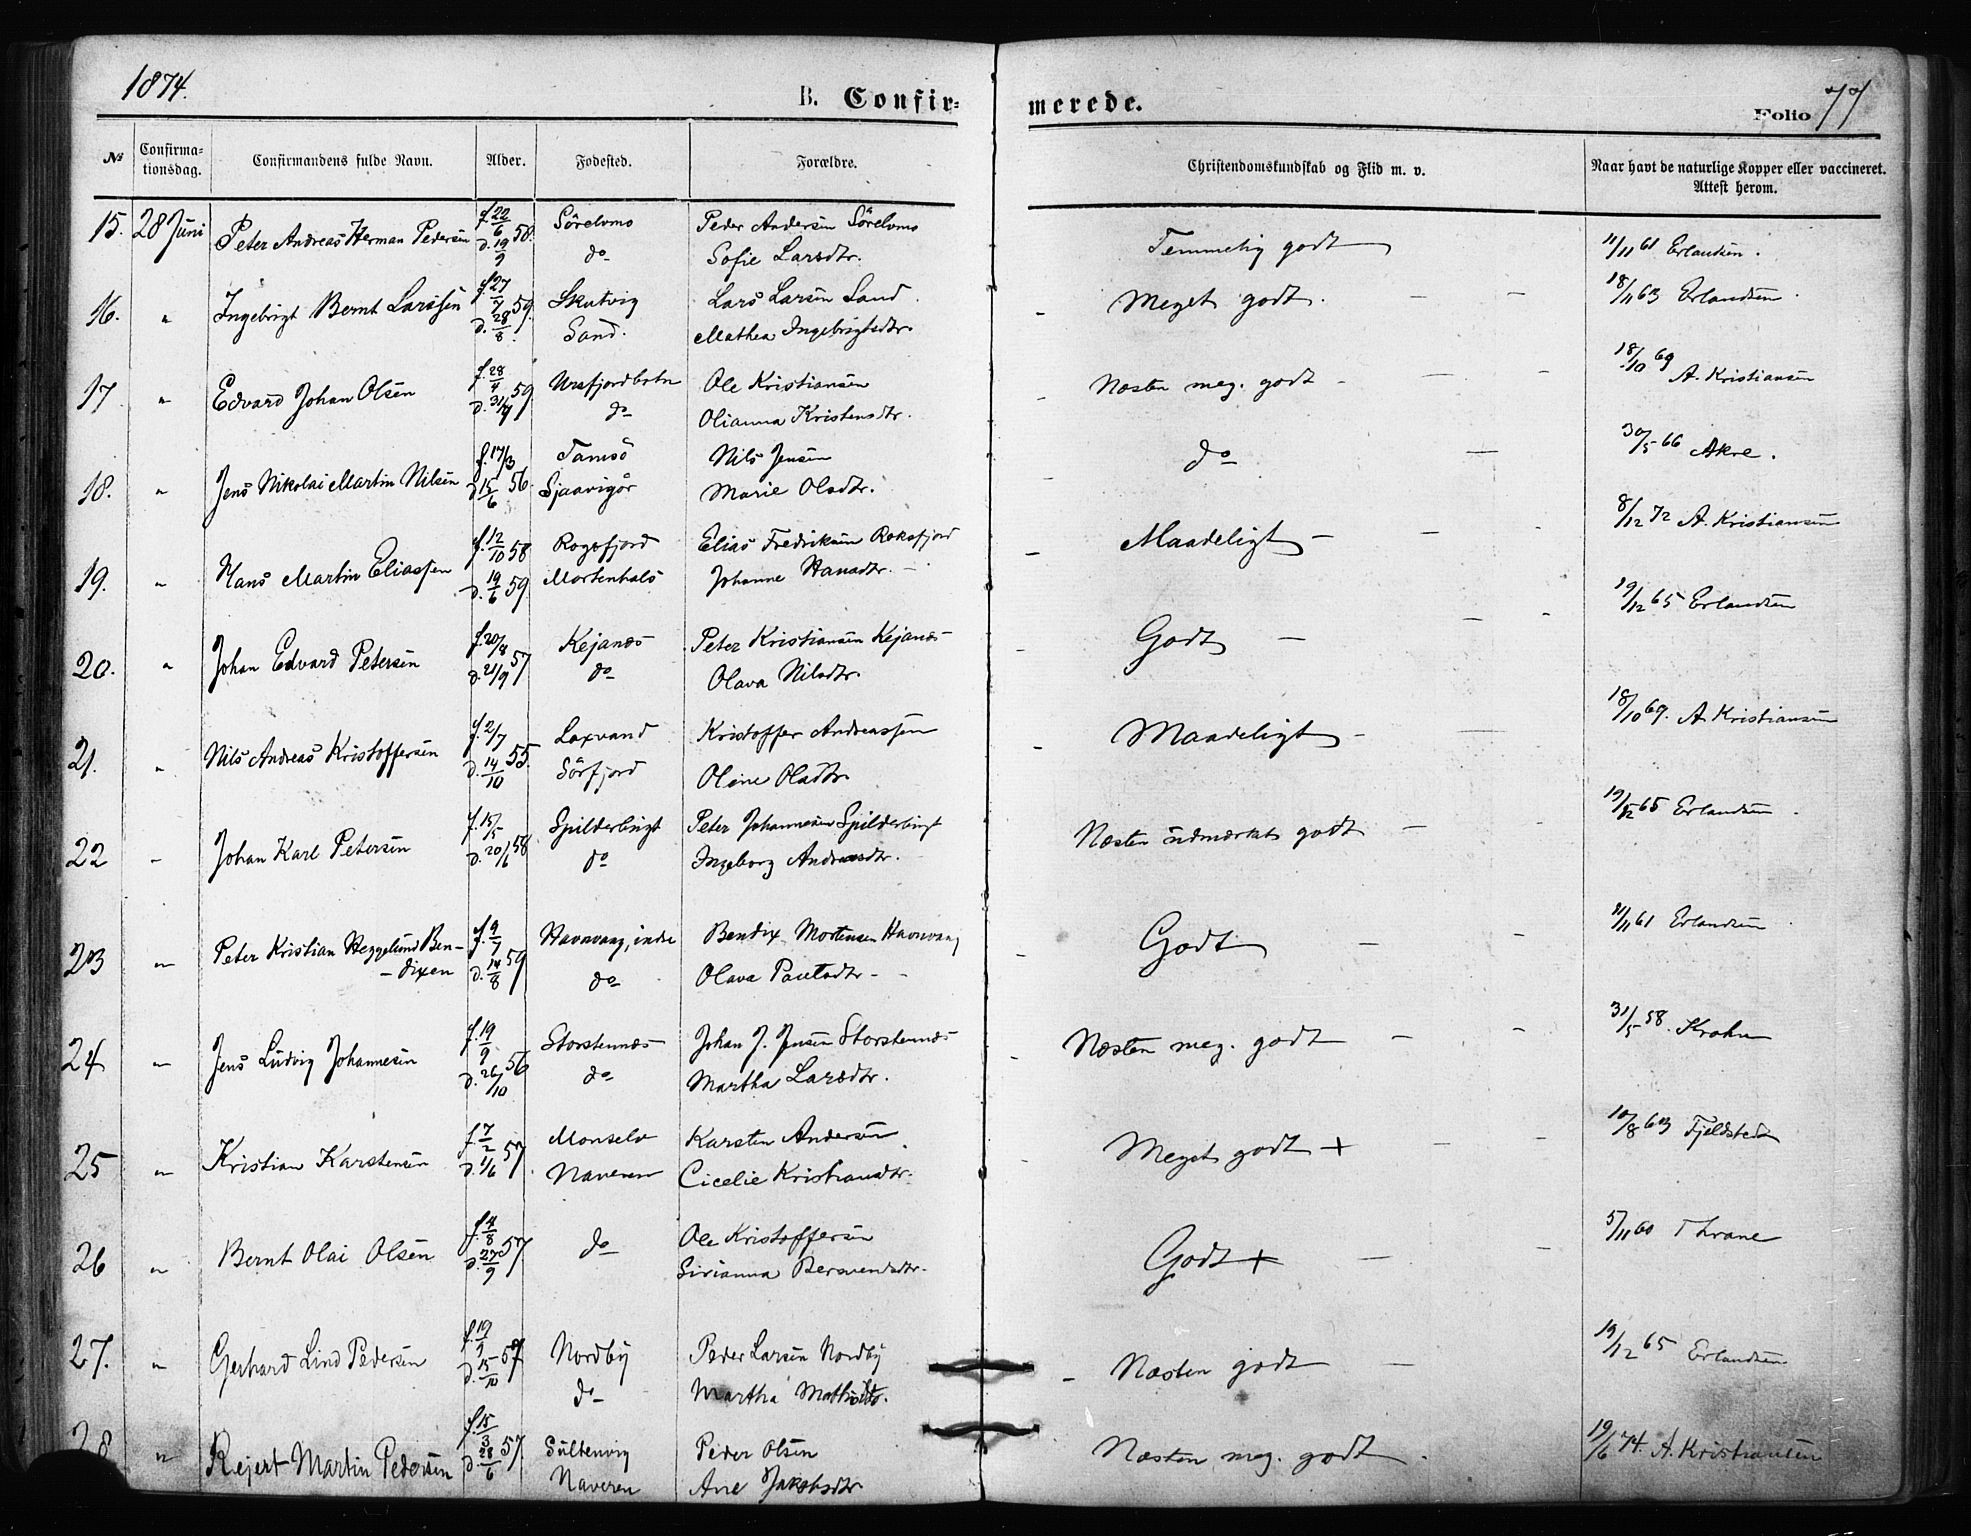 1874.
B. Confir=
merede.
Folio 77
№ Confirma=tionsdag. Confirmandens fulde Navn. Alder. Fødested. Forældre. Christendomskundskab og Flid m. v. Naar havt de naturlige Kopper eller vaccineret. Attest herom.
15. 28 Juni Peter Andreas Herman Pedersen f. 22/6 58. Sörelvmo Peder Andersen Sörelvmo Temmelig godt 11/11 61 Erlandsen.
d. 19/9 do Sofie Larsdtr.
16. " Ingebrigt Bernt Larssen f. 27/7 59. Skutvig Lars Larsen Sand - Meget godt. - - 18/11 63 Erlandsen.
d. 28/8 Sand. Mathea Ingebrigtsdtr.
17 " Edvard Johan Olsen f. 28/4 59 Ursfjordbotn Ole Kristiansen - Næsten meg. godt - - - 18/10 69 A. Kristiansen
d. 31/7 do Olianna Kristensdtr.
18. " Jens Nikolai Martin Nilsen f. 17/3 56. Tamsö Nils Jensen - do - 30/5 66 Akre.
d. 15/6 Sjaavigör Marie Olsdtr.
19. " Hans Martin Eliassen f. 12/10 58 Rogsfjord Elias Fredriksen Roksfjord - Maadeligt - - - 8/12 72 A. Kristiansen
d. 19/6 59. Mortenhals Johanne Hansdtr. -
20. " Johan Edvard Petersen f. 20/8 57 Kejanæs Peter Kristiansen Kejanæs Godt - - - 19/12 65 Erlandsen
d. 21/9 do Olava Nilsdtr.
21. " Nils Andreas Kristoffersen f. 2/7 55. Laxvand Kristoffer Andreassen - Maadeligt - - 18/10 69. A. Kristiansen
d. 14/10 Sörfjord Oline Olsdtr.
22 " Johan Karl Petersen f. 15/5 58 Spilderbugt Peter Johannesen Spilderbugt Næsten udmærket godt - - 19/12 65 Erlandsen.
d. 20/6 do Ingeborg Andreasdtr.
23 " Peter Kristian Heggelund Ben- f. 9/7 59 Havnvaag, indre Bendix Mortensen Havnvaag - Godt - - 11/11 61 Erlandsen
-dixen d. 14/8 do Olava Paulsdtr - -
24 " Jens Ludvig Johannesen f. 19/9 56 Storstennæs Johan J. Jensen Storstennæs - Næsten meg. godt - - - 31/5 58. Krohn
d. 26/10 do Martha Larsdtr.
25 " Kristian Karstensen f. 7/2 57. Monselv Karsten Andersen - Meget godt + - - 10/8 63 Fjeldsted
d. 1/6 Naveren Cicelie Kristiansdtr.
26 " Bernt Olai Olsen f. 4/8 57. do Ole Kristoffersen Godt + - - 5/11 60 Thrane
d. 27/9 Sirianna Bersvendsdtr.
27. " Gerhard Lind Pedersen f. 19/9 57 Nordby Peder Larsen Nordby - Næsten godt - 19/12 65 Erlandsen
d. 15/10 do Martha Mathisdtr.
28 " Rejert Martin Pedersen f. 15/3 57. Sultenvig Peder Olsen Næsten meg. godt. - 19/6 74. A. Kristiansen
d. 28/6 Naveren Ane Jakobsdtr